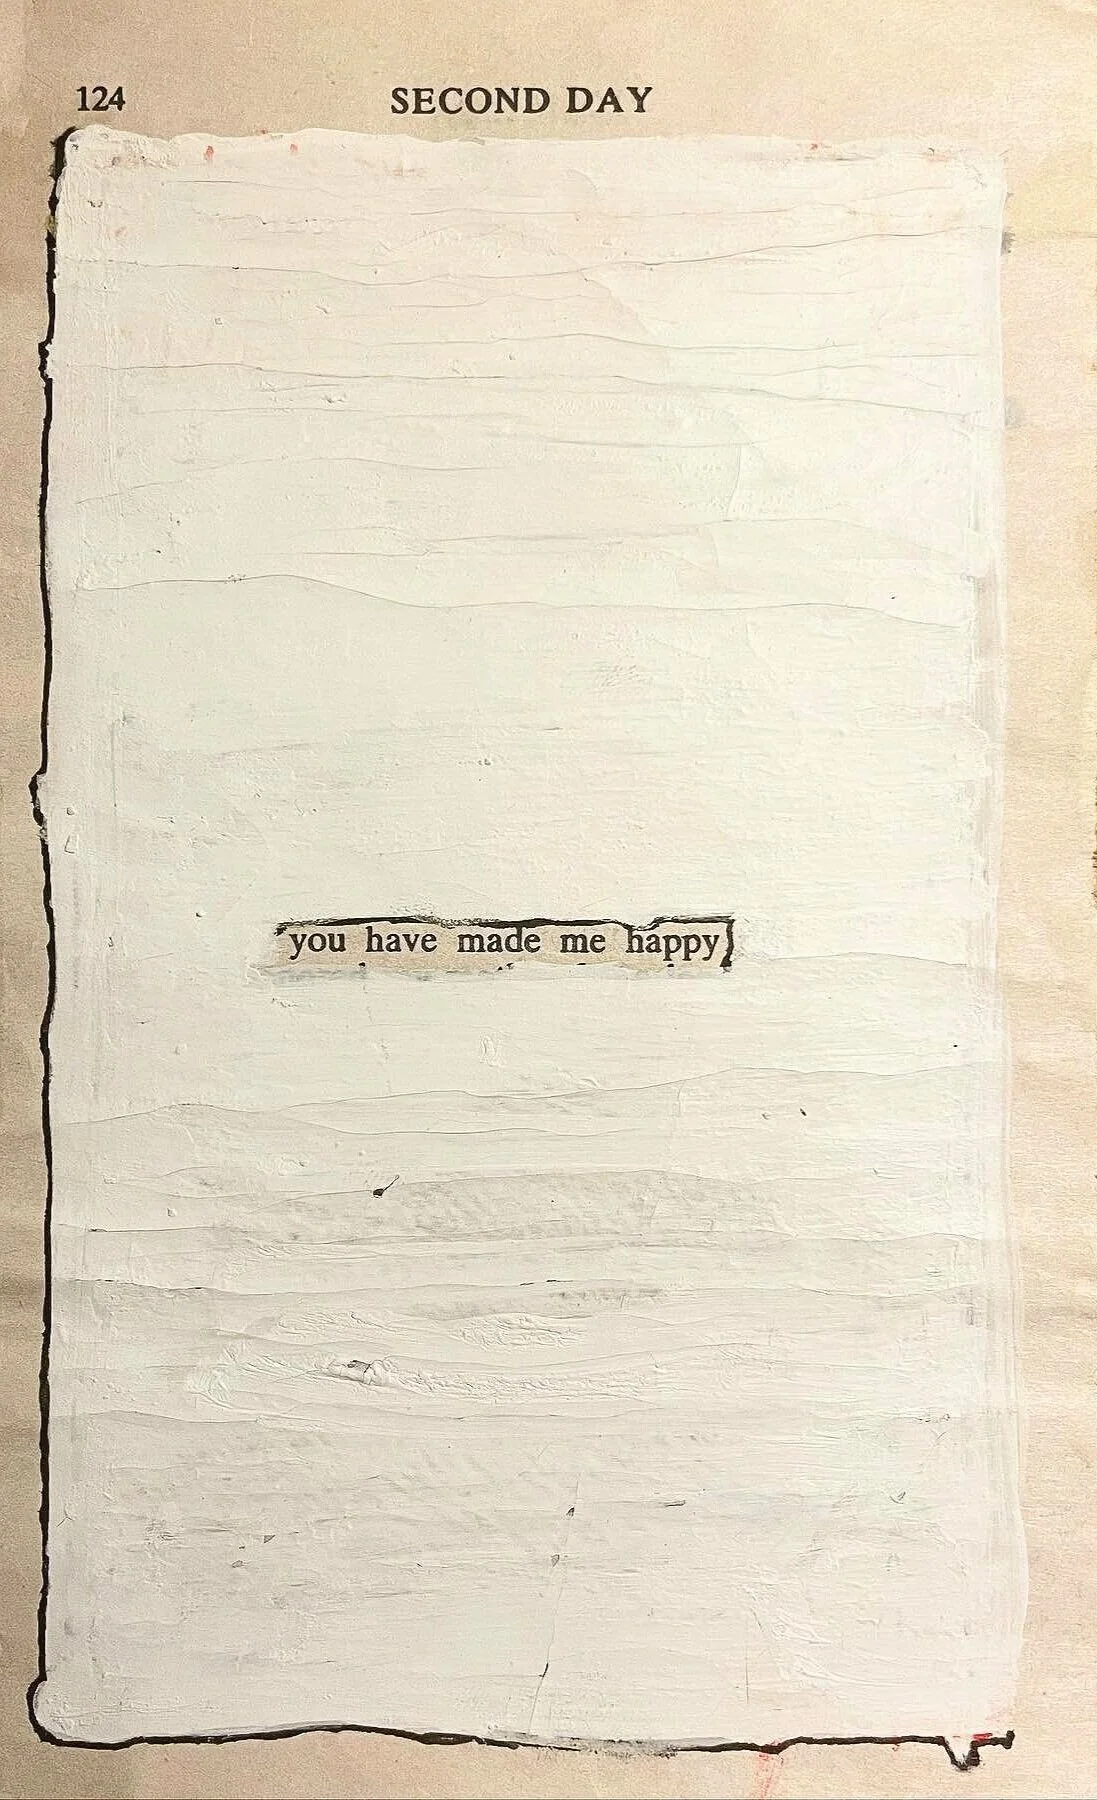 124 SECOND DAY
you have made me happy